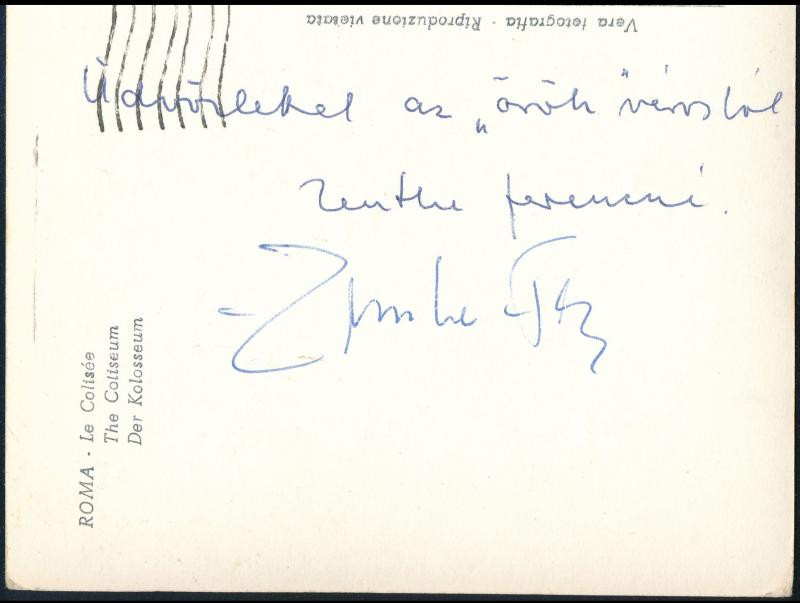 Vera fotografia - Riproduzione vietata
Üdvözlettel az „örök” városból
Zenthe Ferencné.
Zenthe F
ROMA - Le Colisée
The Coliseum
Der Kolosseum